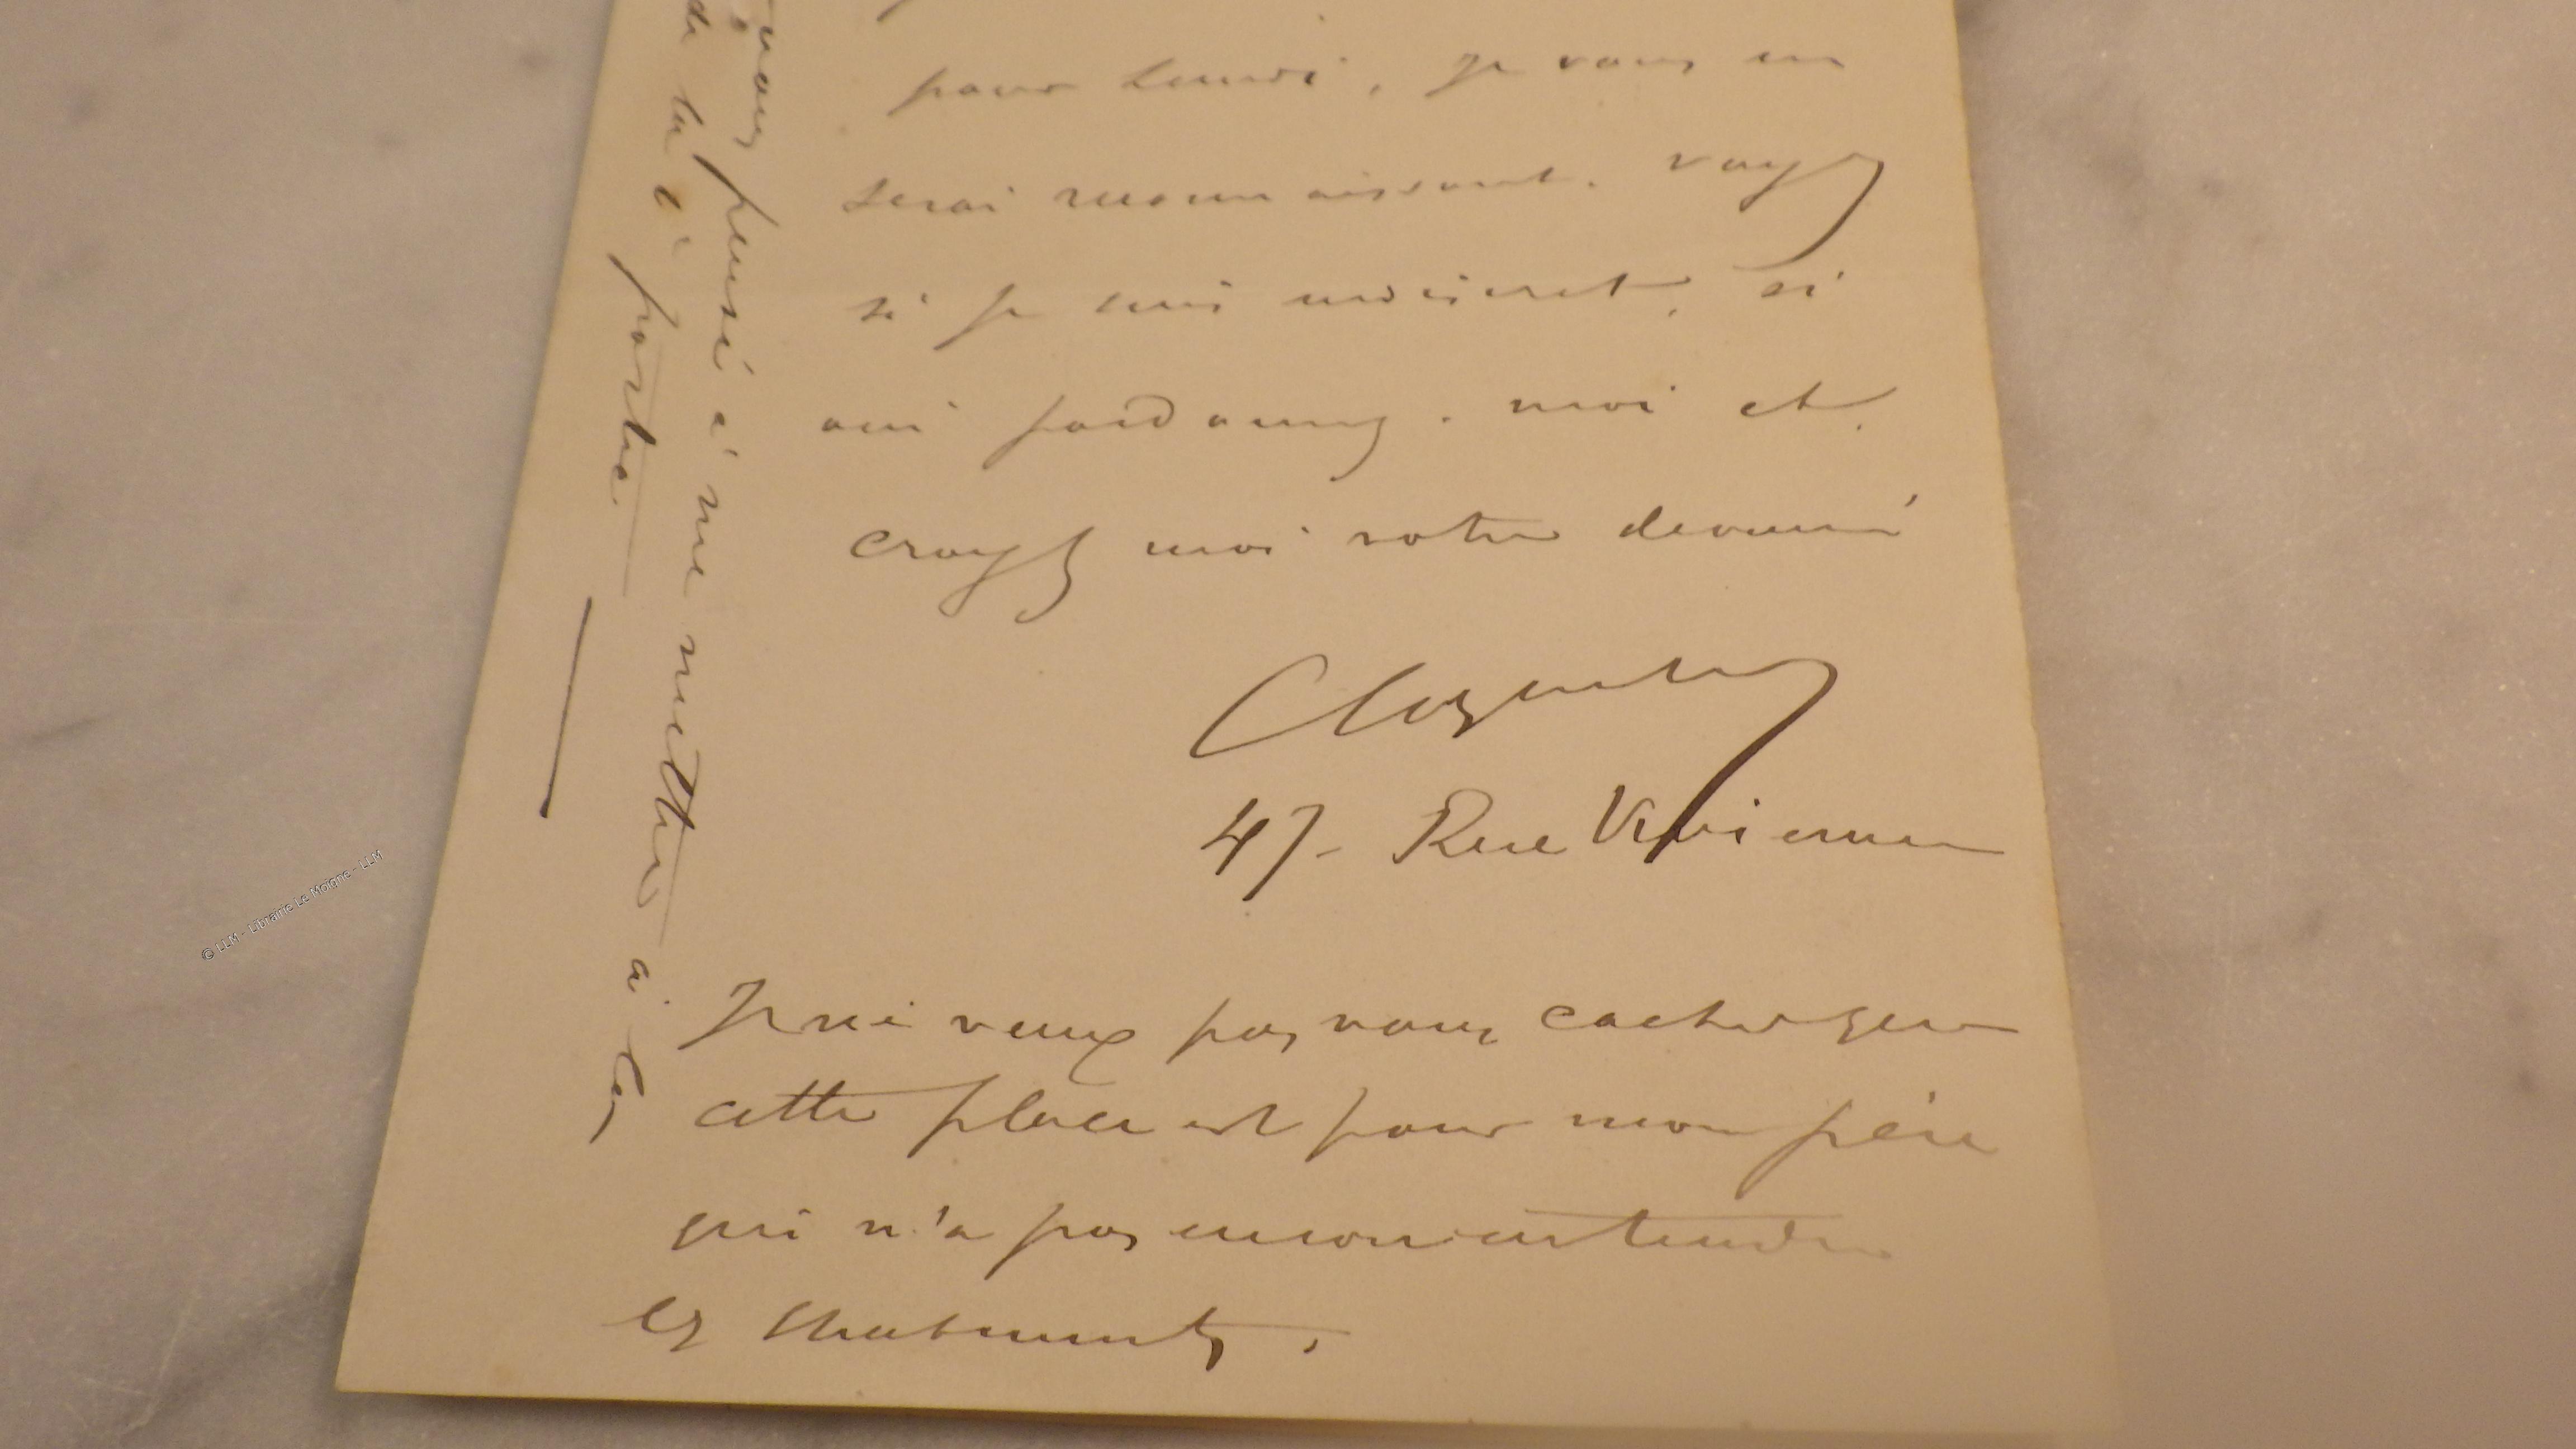 pour Lundi, je vous en
serai reconnaissant. Voyez
si je suis indiscret, si
oui pardonnez-moi et
croyez moi votre dévoué
47- Rue Vivienne
Je ne veux pas vous cacher que
cette place est pour mon père
qui n'a pas encore entendu
les Chatiments.
vous pensé à me mettre à les
de la
porte.
© LLM - Librairie Le Moigne - LLM